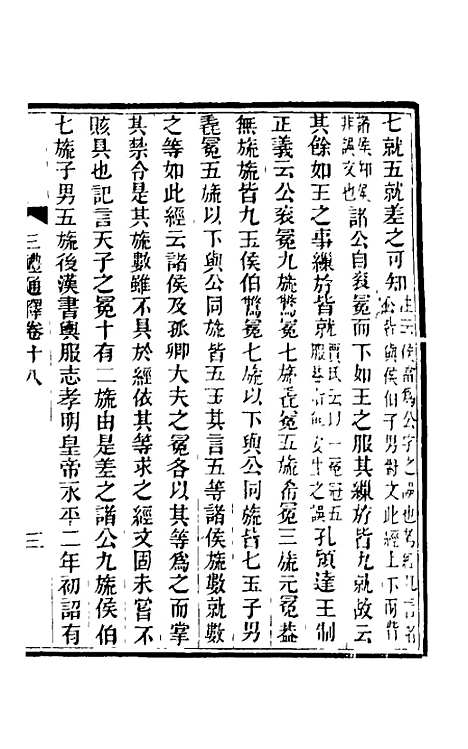 七就五就差之可知
諸公自袞冕而下如王之服其繅斿皆九就故云
其餘如王之事繅斿皆就
孔穎達王制
正義云公袞冕九旒鷩冕七旒毳冕五旒希冕三旒元冕蓋
無旒旒皆九玉侯伯鷩冕七旒以下與公同旒皆七玉子男
毳冕五旒以下與公同旒皆五玉其言五等諸侯旒數就數
之等如此經云諸侯及孤卿大夫之冕各以其等為之而掌
其禁令是其旒數雖不具於經依其等求之經文固未嘗不
賅具也記言天子之冕十有二旒由是差之諸公九旒侯伯
七旒子男五旒後漢書輿服志孝明皇帝永平二年初詔有
三禮通釋卷十八
三